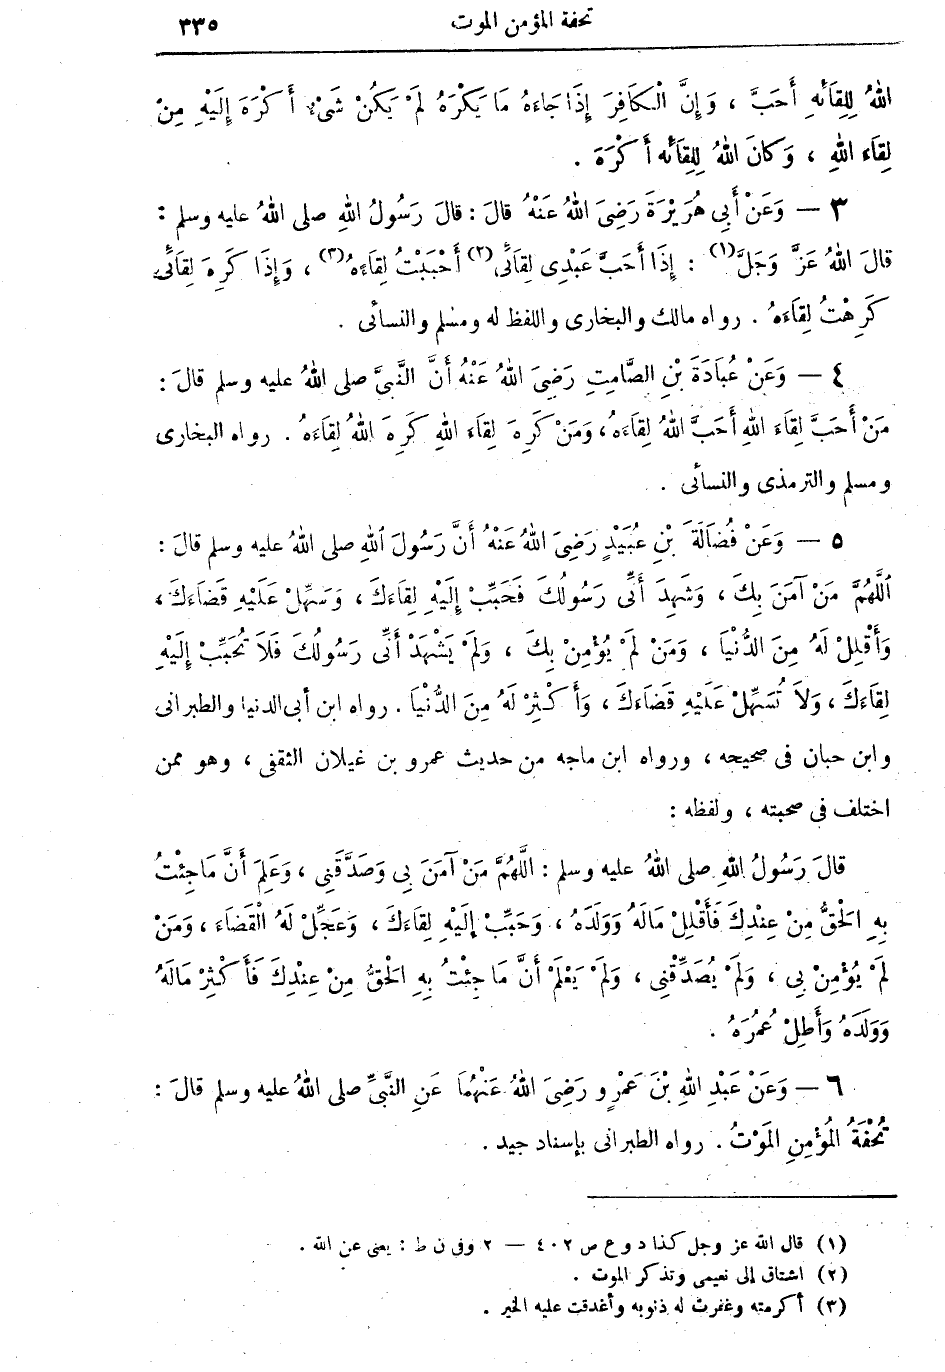 تحفة المؤمن الموت ٣٣٥
اللهُ لِلِقَائِهِ أَحَبَّ ، وَإِنَّ الْكَافِرَ إِذَا جَاءَهُ مَا يَكْرَهُ لَمْ يَكُنْ شَيْءٌ أَكْرَهَ إِلَيْهِ مِنْ
لِقَاءِ اللهِ ، وَكَانَ اللهُ لِلِقَائِهِ أَكْرَهَ .
٣ — وَعَنْ أَبِى هُرَيْرَةَ رَضِىَ اللهُ عَنْهُ قالَ : قالَ رَسُولُ اللهِ صلى اللهُ عليه وسلم :
قالَ اللهُ عَزَّ وَجَلَّ (١) : إِذَا أَحَبَّ عَبْدِى لِقَائَى (٢) أَحْبَبْتُ لِقَاءَهُ (٣) ، وَإِذَا كَرِهَ لِقَائَى
كَرِهْتُ لِقَاءَهُ . رواه مالك والبخارى واللفظ له ومسلم والنسائى .
٤ — وَعَنْ عُبَادَةَ بْنِ الصَّامِتِ رَضِىَ اللهُ عَنْهُ أَنَّ النَّبِىَّ صلى اللهُ عليه وسلم قالَ :
مَنْ أَحَبَّ لِقَاءَ اللهِ أَحَبَّ اللهُ لِقَاءَهُ ، وَمَنْ كَرِهَ لِقَاءَ اللهِ كَرِهَ اللهُ لِقَاءَهُ . رواه البخارى
ومسلم والترمذى والنسائى .
٥ — وَعَنْ فُضَالَةَ بْنِ عُبَيْدٍ رَضِىَ اللهُ عَنْهُ أَنَّ رَسُولَ اللهِ صلى اللهُ عليه وسلم قالَ :
اَللَّهُمَّ مَنْ آمَنَ بِكَ ، وَشَهِدَ أَنِّى رَسُولُكَ فَحَبِّبْ إِلَيْهِ لِقَاءَكَ ، وَسَهِّلْ عَلَيْهِ قَضَاءَكَ ،
وَأَقْلِلْ لَهُ مِنَ الدُّنْيَا ، وَمَنْ لَمْ يُؤْمِنْ بِكَ ، وَلَمْ يَشْهَدْ أَنِّى رَسُولُكَ فَلَا تُحَبِّبْ إِلَيْهِ
لِقَاءَكَ ، وَلَا تُسَهِّلْ عَلَيْهِ قَضَاءَكَ ، وَأَكْثِرْ لَهُ مِنَ الدُّنْيَا . رواه ابن أبى الدنيا والطبرانى
وابن حبان فى صحيحه ، ورواه ابن ماجه من حديث عمرو بن غيلان الثقفى ، وهو ممن
اختلف فى صحبته ، ولفظه :
قالَ رَسُولُ اللهِ صلى اللهُ عليه وسلم : اللَّهُمَّ مَنْ آمَنَ بِى وَصَدَّقَنِى ، وَعَلِمَ أَنَّ مَا جِئْتُ
بِهِ الحَقُّ مِنْ عِنْدِكَ فَأَقْلِلْ مَالَهُ وَوَلَدَهُ ، وَحَبِّبْ إِلَيْهِ لِقَاءَكَ ، وَعَجِّلْ لَهُ الْقَضَاءَ ، وَمَنْ
لَمْ يُؤْمِنْ بِى ، وَلَمْ يُصَدِّقْنِى ، وَلَمْ يَعْلَمْ أَنَّ مَا جِئْتُ بِهِ الحَقُّ مِنْ عِنْدِكَ فَأَكْثِرْ مَالَهُ
وَوَلَدَهُ وَأَطِلْ عُمُرَهُ .
٦ — وَعَنْ عَبْدِ اللهِ بْنِ عَمْرٍو رَضِىَ اللهُ عَنْهُمَا عَنِ النَّبِىِّ صلى اللهُ عليه وسلم قالَ :
تُحْفَةُ المُؤْمِنِ المَوْتُ . رواه الطبرانى بإسناد جيد .
(١) قال الله عز وجل كذا د وع ص ٤٠٢ — ٢ وفى ن ط : يعنى عن الله .
(٢) اشتاق إلى نعيمى وتذكر الموت .
(٣) أكرمته وغفرت له ذنوبه وأغدقت عليه الخير .